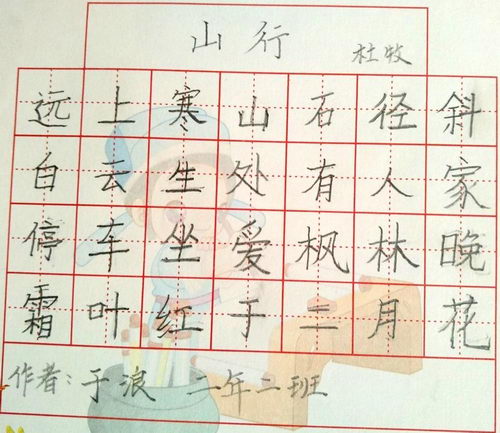 山行 杜牧
远上寒山石径斜
白云生处有人家
停车坐爱枫林晚
霜叶红于二月花
作者：于浪 二年二班